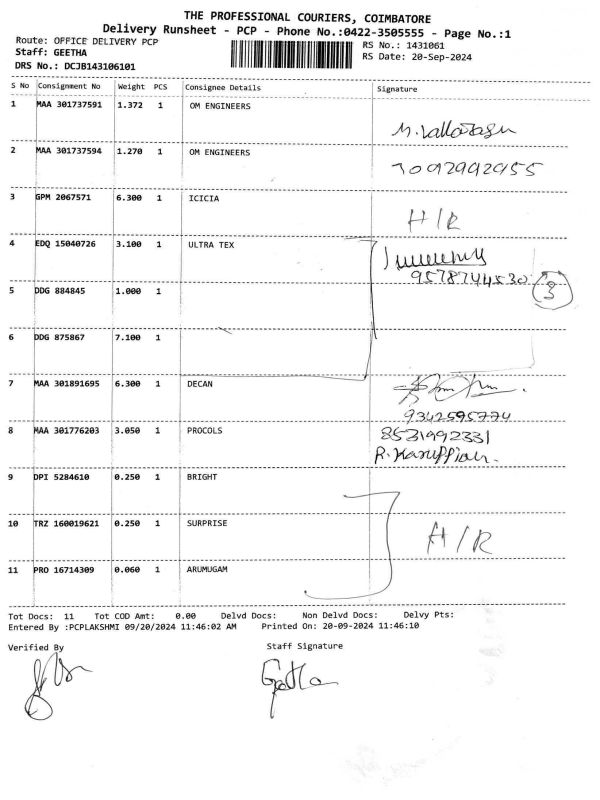 THE PROFESSIONAL COURIERS, COIMBATORE
Delivery Runsheet - PCP - Phone No.:0422-3505555 - Page No.:1
Route: OFFICE DELIVERY PCP
RS No.: 1431061
Staff: GEETHA
RS Date: 20-Sep-2024
DRS No.: DCJB143106101
S No Consignment No Weight PCS Consignee Details Signature
1 MAA 301737591 1.372 1 OM ENGINEERS
2 MAA 301737594 1.270 1 OM ENGINEERS
3 GPM 2067571 6.300 1 ICICIA
H/R
4 EDQ 15040726 3.100 1 ULTRA TEX
9578744530
3
5 DDG 884845 1.000 1
6 DDG 875867 7.100 1
7 MAA 301891695 6.300 1 DECAN
9342595774
8 MAA 301776203 3.050 1 PROCOLS
8531992331
R. Karuppiah.
9 DPI 5284610 0.250 1 BRIGHT
10 TRZ 160019621 0.250 1 SURPRISE
H/R
11 PRO 16714309 0.060 1 ARUMUGAM
Tot Docs: 11 Tot COD Amt: 0.00 Delvd Docs: Non Delvd Docs: Delvy Pts:
Entered By :PCPLAKSHMI 09/20/2024 11:46:02 AM Printed On: 20-09-2024 11:46:10
Verified By Staff Signature
Geetha